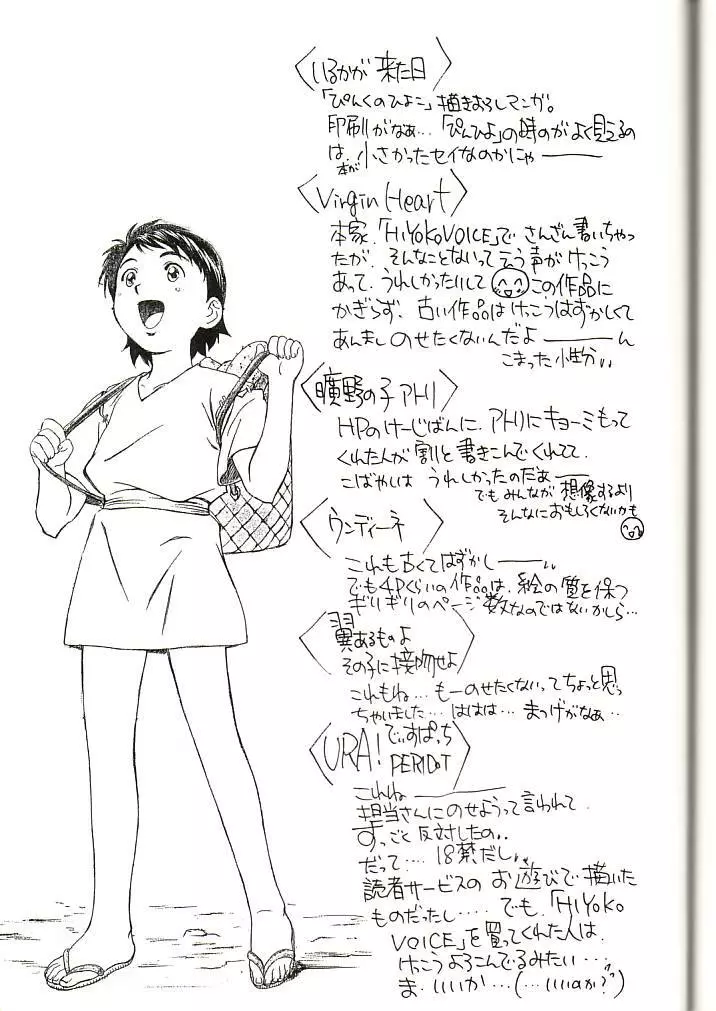 〈いるかが来た日〉
「ぴんくのひよこ」描きおろしマンガ。
印刷がなぁ…「ぴんひよ」の時のがよく見えるの
は、本が小さかったセイなのかにゃー
〈Virgin Heart〉
本家、「HiYoKoVOICE」でさんざん書いちゃっ
たが、そんなことないって言う声がけっこう
あって、うれしかったりして この作品に
かぎらず、古い作品はけっこうはずかしくて
あんましのせたくないんだよーん
こまった小性分
〈曠野の子アハリ〉
HPのけーじばんに、アハリにキョーミもって
くれた人が割と書きこんでくれてて、
こばやしは うれしかったのだぁー
でもみんなが想像するより
そんなにおもしろくないかも
〈ウンディーネ〉
これも古くてはずかしー
でも4Pくらいの作品は、絵の質を保つ
ギリギリのページ数なのではないかしら…
〈翼あるものよ
その子に接吻せよ〉
これもね…もーのせたくないってちょっと思っ
ちゃいました…ははは…まつげがなぁ‥
〈URA!でぃすぱっち
PERIDOT〉
これねー
担当さんにのせようって言われて
すっごく反対したの、
だって‥‥18禁だし、
読者サービスのお遊びで描いた
ものだったし‥‥でも、「HIYoKo
VOICE」を買ってくれた人は、
けっこうよろこんでるみたい…
ま、いいか…(…いいのか?)